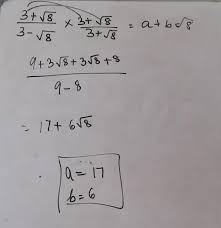 (3+√8)/(3-√8) × (3+√8)/(3+√8) = a+b√8
(9+3√8+3√8+8)/(9-8)
= 17+6√8
a = 17
b = 6